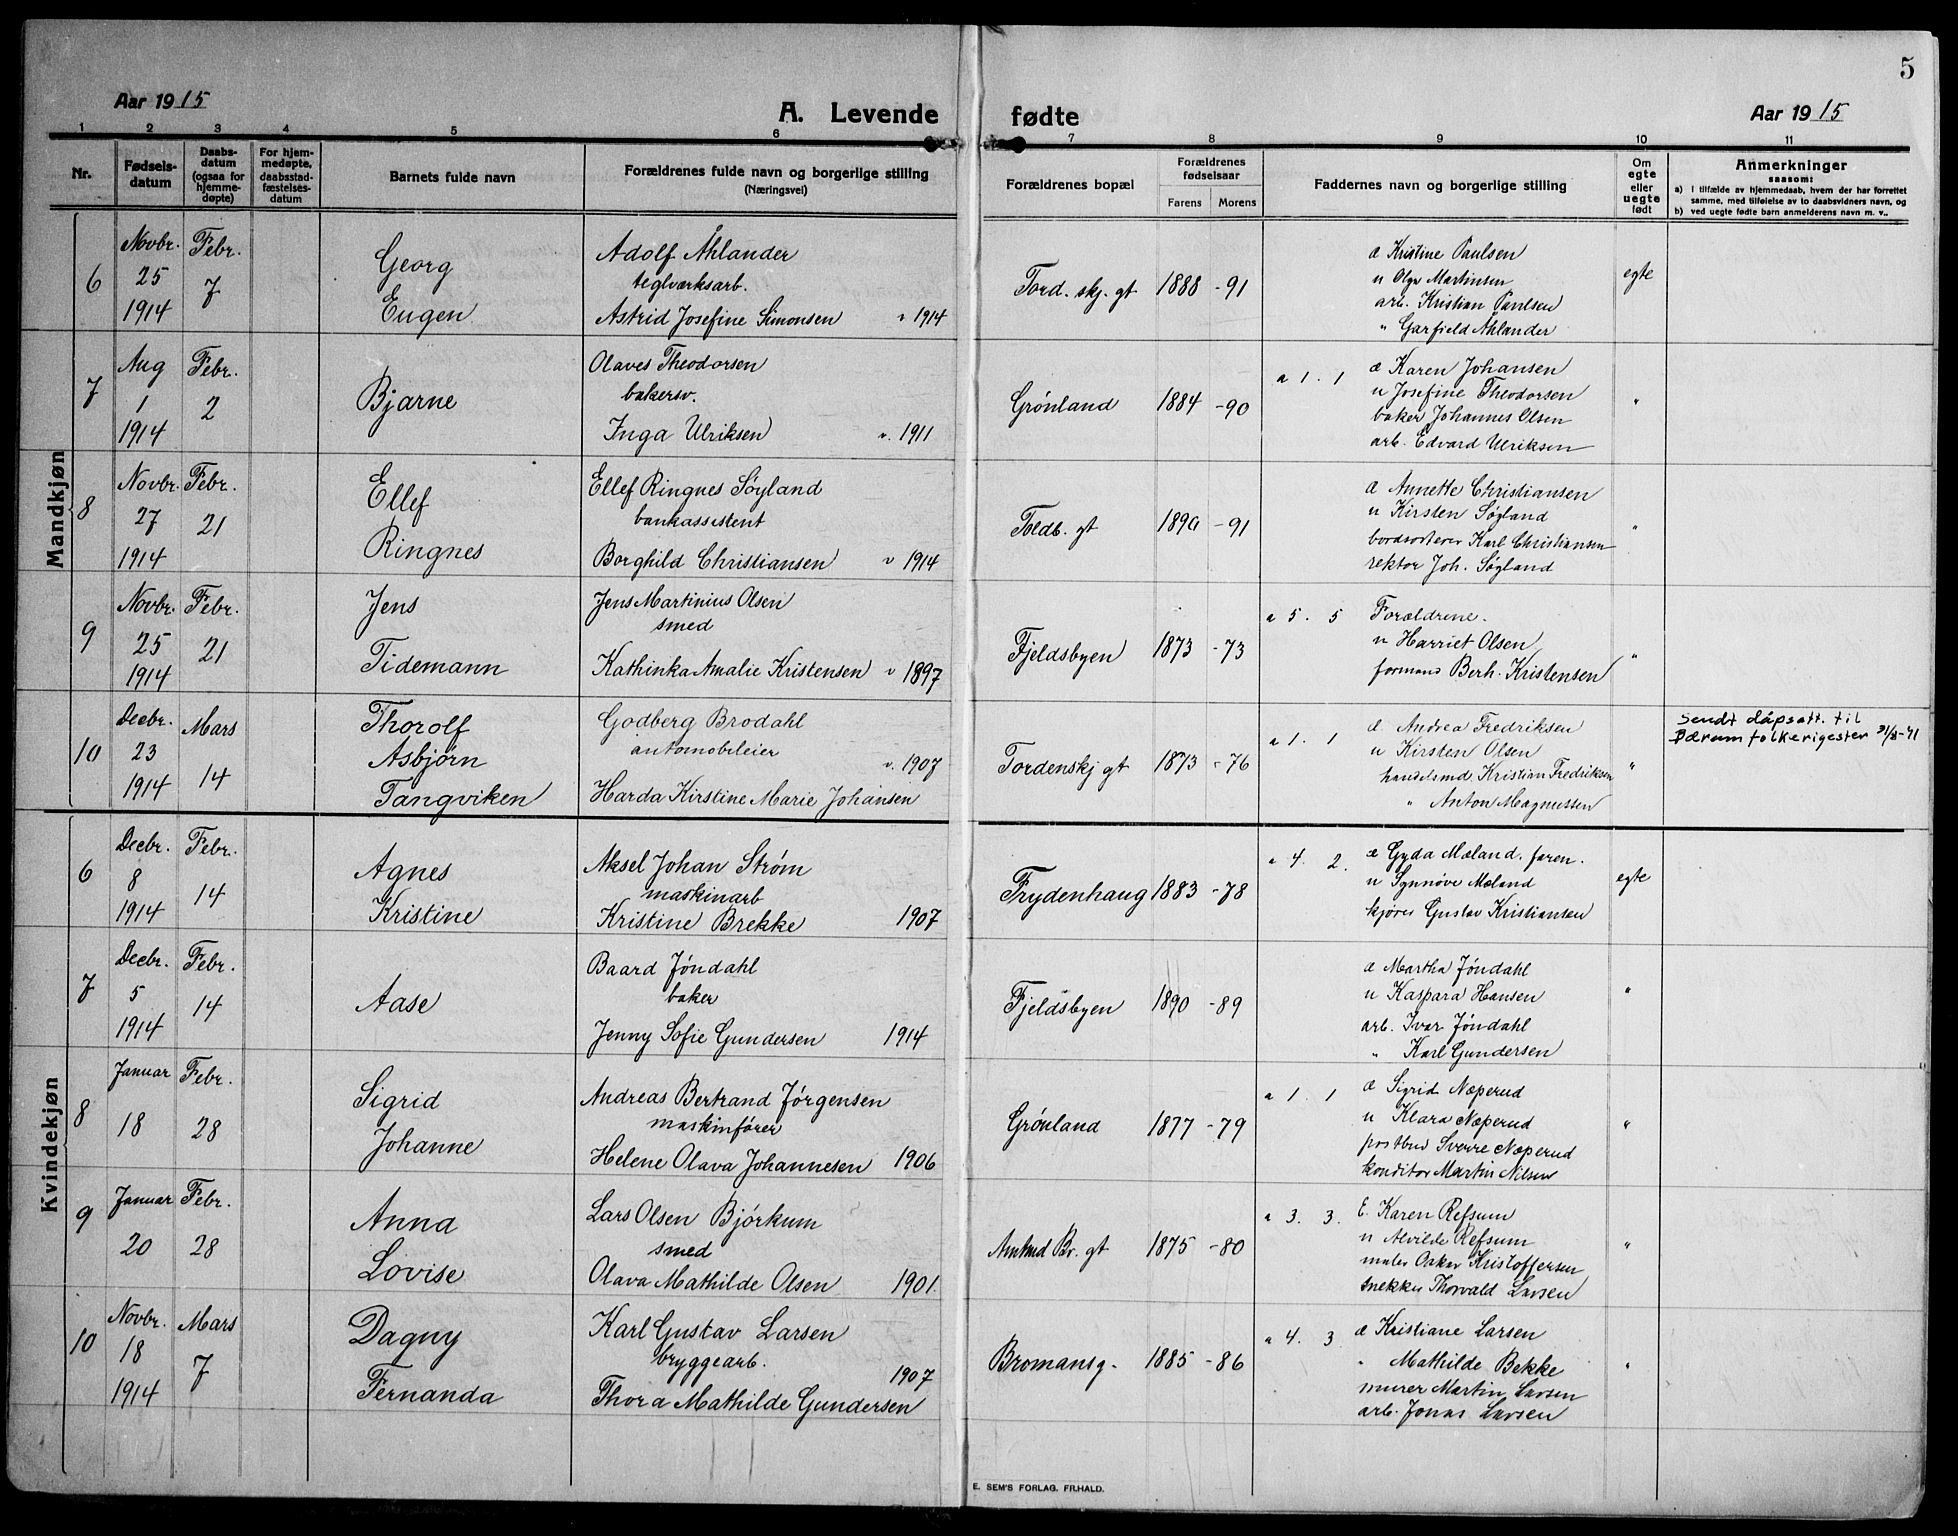 5
Aar 1915
A. Levende
fødte
Aar 1915
1 2 3 4 5 6 7 8 9 10 11
Nr.
Fødsels-
datum
Daabs-
datum
(ogsaa for
hjemme-
døpte)
For hjem-
medøpte,
daabsstad-
fæstelses-
datum
Barnets fulde navn
Forældrenes fulde navn og borgerlige stilling
(Næringsvei)
Forældrenes bopæl
Forældrenes
fødselsaar
Farens Morens
Faddernes navn og borgerlige stilling
Om
egte
eller
uegte
født
Anmerkninger
saasom:
a) i tilfælde av hjemmedaab, hvem der har forrettet
samme, med tilføielse av to daabsvidners navn, og
b) ved uegte fødte barn anmelderens navn m. v..
Mandkjøn
6
Novbr.
25
1914
Febr.
7
Georg
Eugen
Adolf Åhlander
teglværksarb.
Astrid Josefine Simonsen v 1914
Tord. skj. gt 1888 -91
æ Kristine Paulsen
u Olga Martinsen
arb. Kristian Paulsen
" Garfield Åhlander
egte
7
Aug
1
1914
Febr.
2
Bjarne
Olaves Theodorsen
bakersv.
Inga Ulriksen v. 1911
Grønland 1884 -90
a 1. 1
æ Karen Johansen
u Josefine Theodorsen
baker Johannes Olsen
arb. Edvard Ulriksen
"
8
Novbr.
27
1914
Febr.
21
Ellef
Ringnes
Ellef Ringnes Søyland
bankassistent
Borghild Christiansen v 1914
Toldb. gt 1890 -91
æ Annette Christiansen
u Kirsten Søyland
bordsorterer Karl Christiansen
rektor Joh. Søyland
"
9
Novbr.
25
1914
Febr.
21
Jens
Tidemann
Jens Martinius Olsen
smed
Kathinka Amalie Kristensen v 1897
Fjeldsbyen 1873 -73
a 5. 5
Forældrene.
u Harriet Olsen
formand Berh. Kristensen
"
10
Decbr.
23
1914
Mars
14
Thorolf
Asbjørn
Tangviken
Godberg Brodahl
automobileier
v. 1907
Harda Kirstine Marie Johansen
Tordenskj gt 1873 -76
a 1. 1
æ Andrea Fredriksen
u Kirsten Olsen
handelsmd. Kristian Fredriksen
" Anton Magnussen
"
Sendt dåpsatt. til
Bærum folkerigester 31/8-41
Kvindekjøn
6
Decbr.
8
1914
Febr.
14
Agnes
Kristine
Aksel Johan Strøm
maskinarb
Kristine Brekke 1907
Frydenhaug 1883 -78
a 4. 2.
æ Gyda Mæland. faren.
u Synnøve Mæland
kjører Gustav Kristiansen
egte
7
Decbr.
5
1914
Febr.
14
Aase
Baard Jøndahl
baker
Jenny Sofie Gundersen 1914
Fjeldsbyen 1890 -89
æ Martha Jøndahl
u Kaspara Hansen
arb. Ivar Jøndahl
" Karl Gundersen
"
8
Januar
18
Febr.
28
Sigrid
Johanne
Andreas Bertrand Jørgensen
maskinfører
Helene Olava Johannesen 1906
Grønland 1877 -79
a 1. 1
æ Sigrid Næperud
u Klara Næperud
postbud Sverre Næperud
konditor Martin Nilsen
"
9
Januar
20
Febr.
28
Anna
Lovise
Lars Olsen Bjørkum
smed
Olava Mathilde Olsen 1901.
Amtmd Br. gt 1875 -80
a 3. 3.
E. Karen Refsum
u Alvilde Refsum
maler Oskar Kristoffersen
snekker Thorvald Larsen
"
10
Novbr.
18
1914
Mars
7
Dagny
Fernanda
Karl Gustav Larsen
bryggearb.
1907
Thora Mathilde Gundersen
Bromansg. 1885 -86
a 4. 3
æ Kristiane Larsen
" Mathilde Bekke
murer Martin Larsen
arb. Jonas Larsen
"
E. SEM'S FORLAG. FR.HALD.